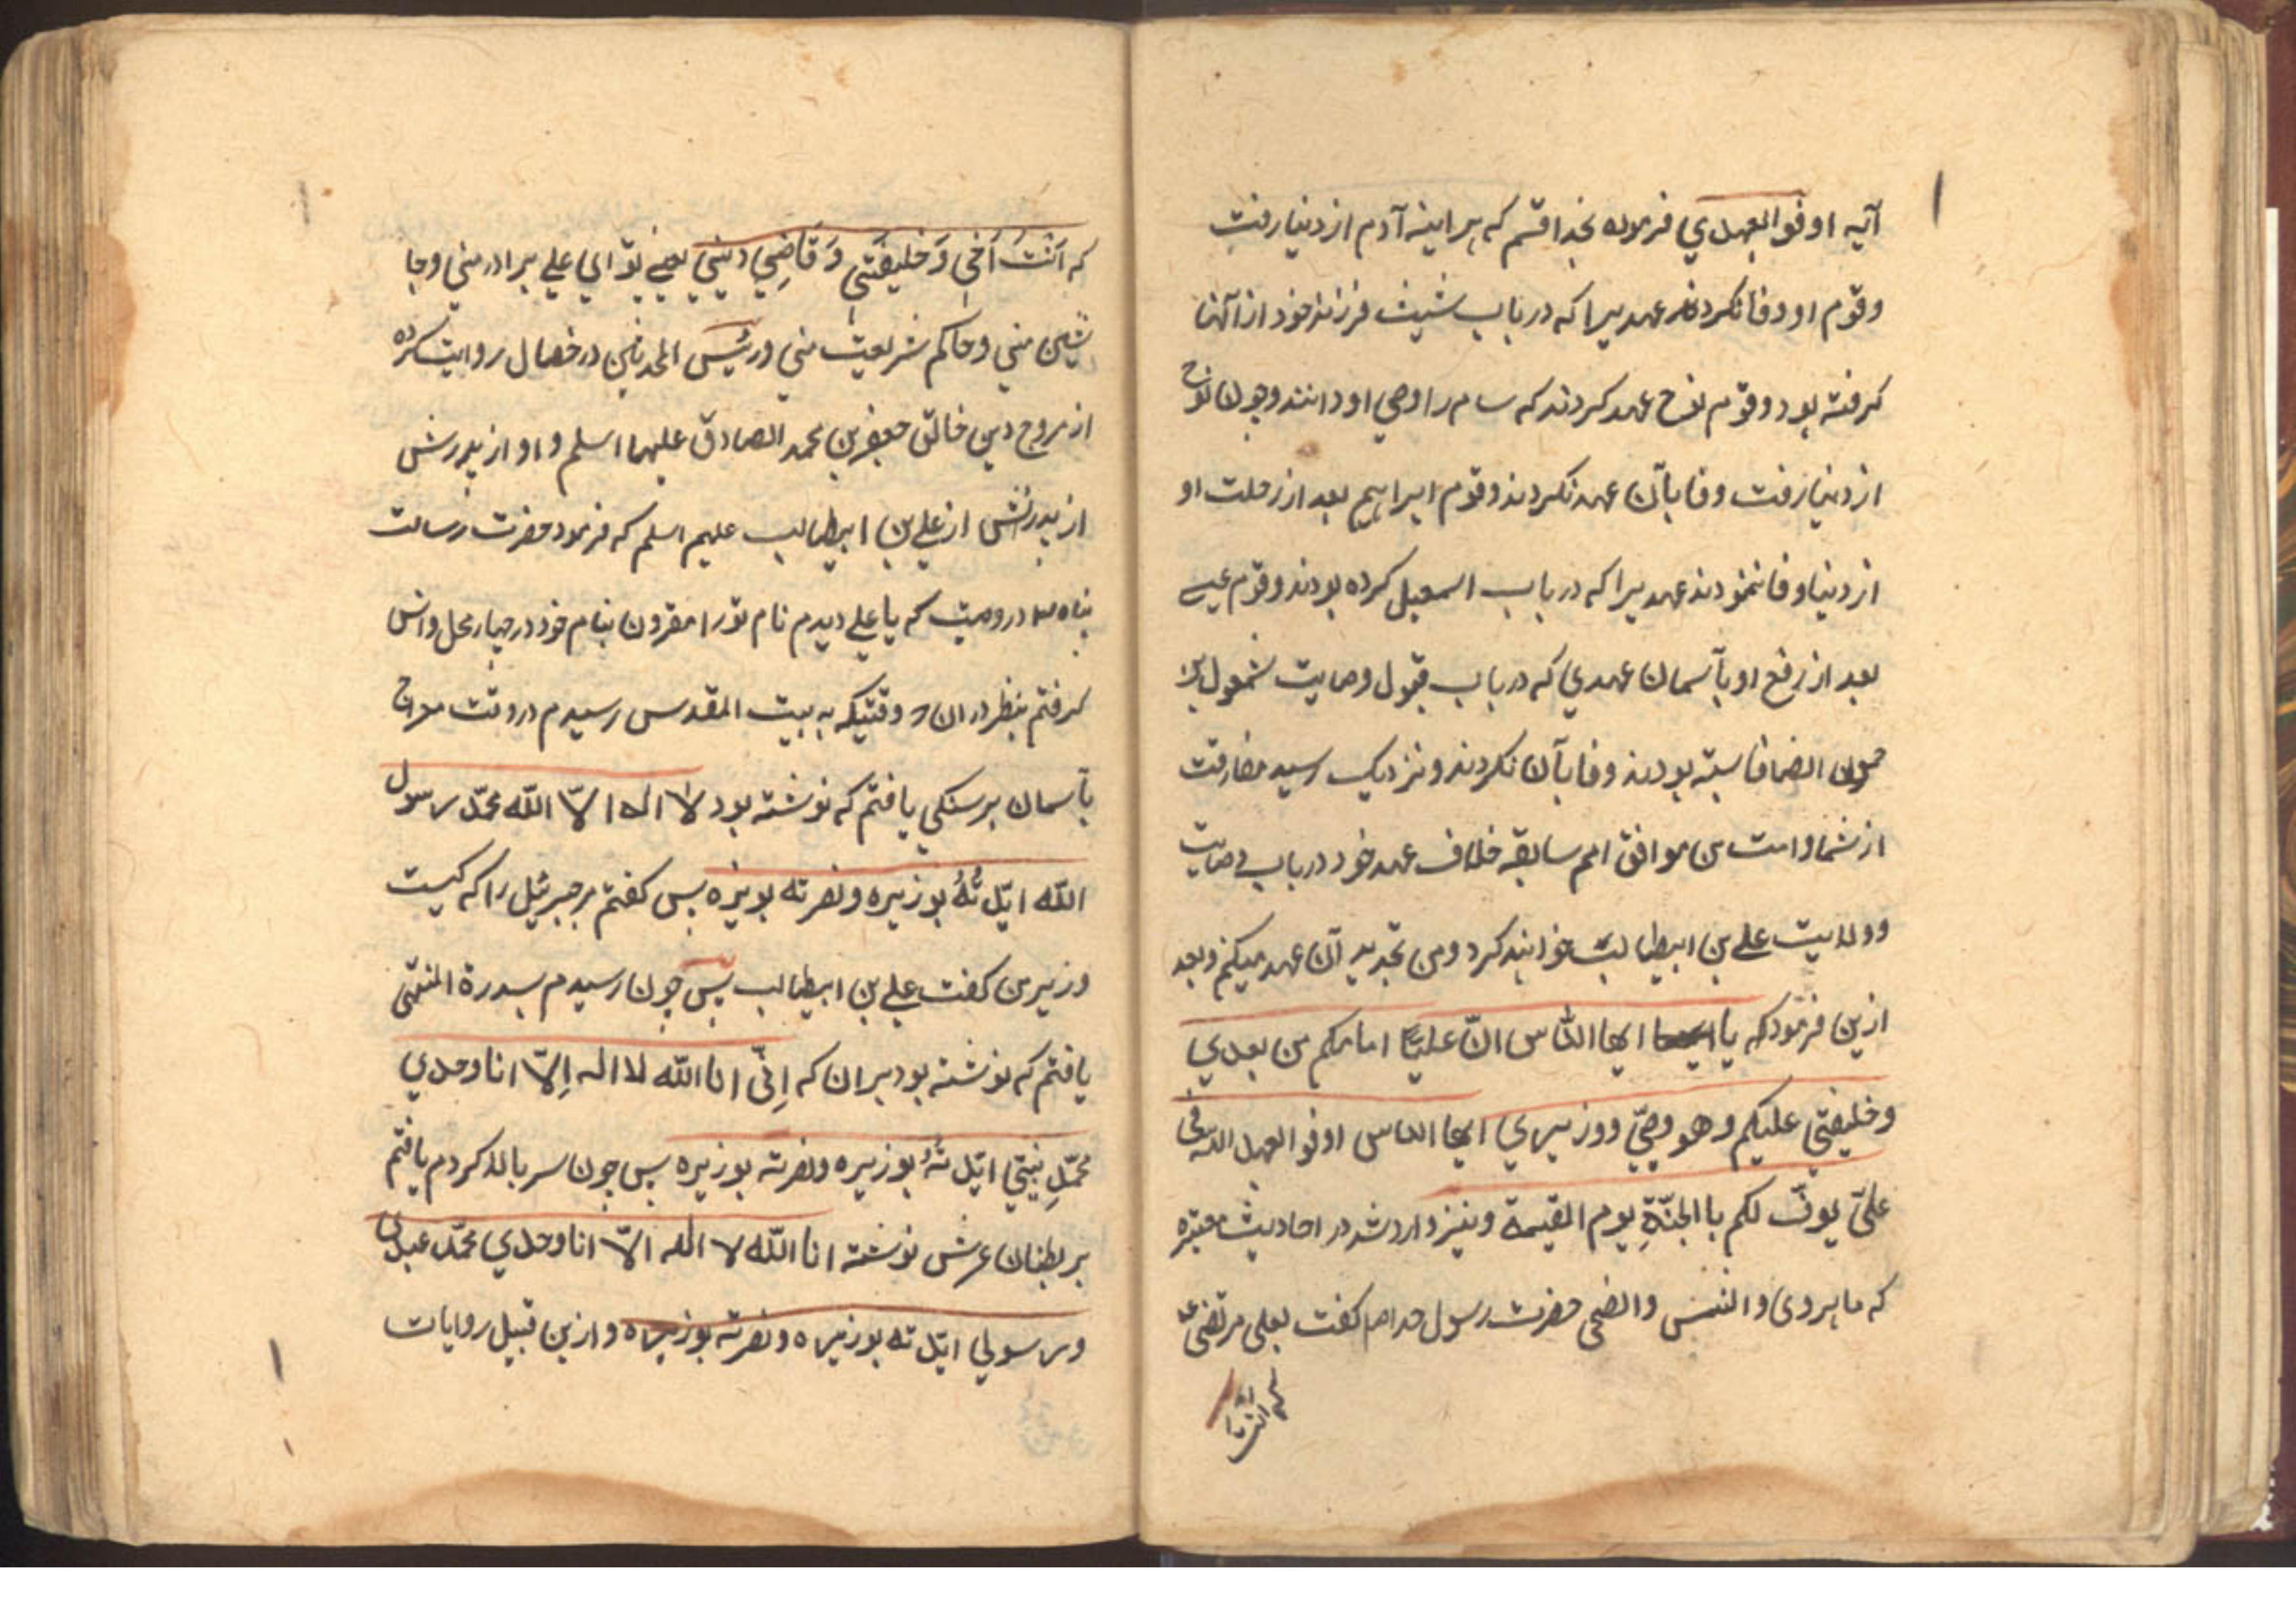 آیه اوفو العهدي فرموده بخدا قسم که هر اینه آدم از دنیا رفت
وقوم او وفا نکردند عهدیرا که در باب شیث فرزند خود از آنها
کرفته بود و قوم نوح عهد کردند که سام را وصي او دانند و چون نوح
از دنیا رفت وفا بآن عهد نکردند و قوم ابراهیم بعد از رحلت او
از دنیا وفا ننمودند عهدیرا که در باب اسمعیل کرده بودند و قوم عیسے
بعد از رفع او بآسمان عهدي که در باب قبول وصایت شمعون بن
حمون الصفا بسته بودند وفا بآن نکردند و نزدیک رسید مفارقت
از شما و امت من موافق امم سابقه خلاف عهد خود در باب وصایت
و ولایت علے بن ابیطالب خواهند کرد و من تجدید آن عهد میکنم و بعد
ازین فرمود که یا ایها الناس انّ علیّا امامکم من بعدي
وخلیفتي علیکم وهو وصیّي ووزیري ایها الناس اوفو العهد الذي
علیّ یوفّ لکم با الجنّةِ یوم القیمة و نیز وارد شد در احادیث معتبره
که ما یروی والشمس والضحی حضرت رسول خدا ص کفت بعلی مرتضی ع
که انت
که اَنْتَ اَخي وَ خلیفَتي وَ قاضِي دیني یعنے تو اي علے برادر مني و جا
نشین مني و حاکم شریعت مني و رئیس المحدثین در خصال روایت کرده
از مروج دین خالق جعفر بن محمد الصادق علیهما اسلم و او از پدرش
از پدرش از علے بن ابیطالب علیهم اسلم که فرمود حضرت رسالت
پناه ص در وصیت که یا علے دیدم نام تو را مقرون بنام خود در چهار محل و انس
کرفتم بنظر در ان وقتیکه به بیت المقدس رسیدم در وقت معراج
بآسمان بر سنکي یافتم که نوشته بود لا اله الّا اللّه محمّد رسول
اللّه ایّدتُهُ بوزیره ونصرته بوزیره پس کفتم بر جبرئیل را که کیست
وزیر من کفت علے بن ابیطالب پس چون رسیدم بسدرة المنتهی
یافتم که نوشته بود بران که اِنّي انا اللّه لا اله اِلّا انا وحدي
محمّدِ نبیّي ایّدتُهُ بوزیره ونصرته بوزیره پس چون سر بالا کردم یافتم
بر بطنان عرش نوشته انا اللّه لا اله الّا انا وحدي محمّد عبدي
ورسولي ایّدته بوزیره ونصرته بوزیره و ازین قبیل روایات